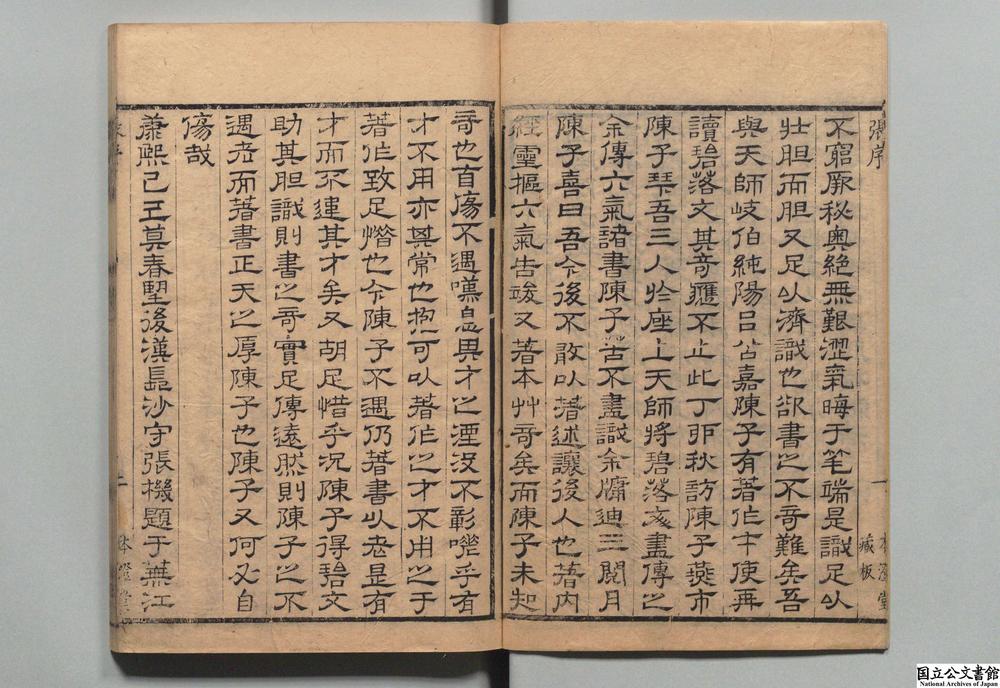 張序
一
本澄堂
藏板
不窮厥秘奧絕無艱澀氣晦于笔端是識足以
壯胆而胆又足以濟識也欲書之不奇難矣吾
與天師岐伯純陽呂公嘉陳子有著作才使再
讀碧落文其奇應不止此丁卯秋訪陳子燕市
陳子琴吾三人於座上天師將碧落文盡傳之
余傳六氣諸書陳子苦不盡識余牖迪三閱月
陳子喜曰吾今後不敢以著述讓後人也著內
經靈樞六氣告竣又著本艸奇矣而陳子未知
奇也自傷不遇嘆息異才之湮沒不彰嗟乎有
才不用亦其常也抱可以著作之才不用之于
著作致足惜也今陳子不遇仍著書以老是有
才而不違其才矣又胡足惜乎況陳子得碧文
助其胆識則書之奇實足傳遠然則陳子之不
遇老而著書正天之厚陳子也陳子又何必自
傷哉
康熙己巳莫春望後漢長沙守張機題于蕪江
二
本澄堂
国立公文書館
National Archives of Japan